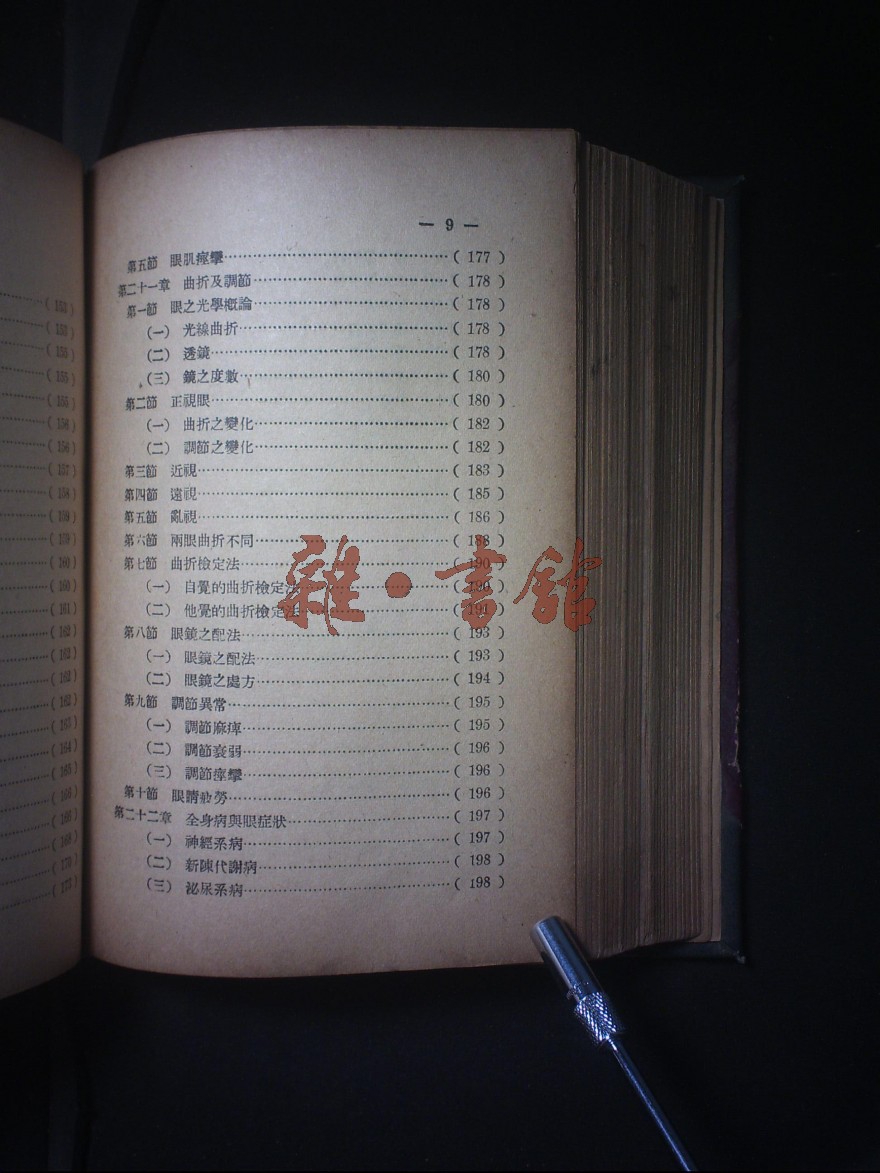 — 9 —
第五節 眼肌痙攣……(177)
第二十一章 曲折及調節……(178)
第一節 眼之光學概論……(178)
(一) 光線曲折……(178)
(二) 透鏡……(178)
(三) 鏡之度數……(180)
第二節 正視眼……(180)
(一) 曲折之變化……(182)
(二) 調節之變化……(182)
第三節 近視……(183)
第四節 遠視……(185)
第五節 亂視……(186)
第六節 兩眼曲折不同……(188)
第七節 曲折檢定法……(190)
(一) 自覺的曲折檢定法……(190)
(二) 他覺的曲折檢定法……(191)
第八節 眼鏡之配法……(193)
(一) 眼鏡之配法……(193)
(二) 眼鏡之處方……(194)
第九節 調節異常……(195)
(一) 調節麻痺……(195)
(二) 調節衰弱……(196)
(三) 調節痙攣……(196)
第十節 眼睛疲勞……(196)
第二十二章 全身病與眼症狀……(197)
(一) 神經系病……(197)
(二) 新陳代謝病……(198)
(三) 泌尿系病……(198)
雜·書館